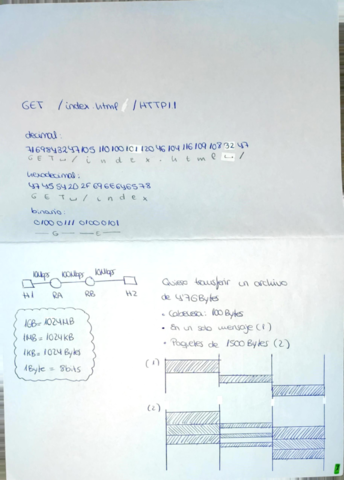 GET /index.html / /HTTP11
decimal:
71 69 84 32 47 105 110 100 101 120 46 104 116 109 108 32 47
G E T ␣ / i n d e x . h t m l ␣ /
hexadecimal:
47 45 54 20 2F 69 6E 64 65 78
G E T ␣ / i n d e x
binario:
01000111 01000101
G E
10Mbps 100Mbps 10Mbps
H1 RA RB H2
1GB = 1024MB
1MB = 1024KB
1KB = 1024 Bytes
1Byte = 8bits
Quiero transferir un archivo
de 4'76 Bytes
• Cabecera: 100 Bytes
• En un solo mensaje (1)
• Paquetes de 1500 Bytes (2)
(1)
(2)